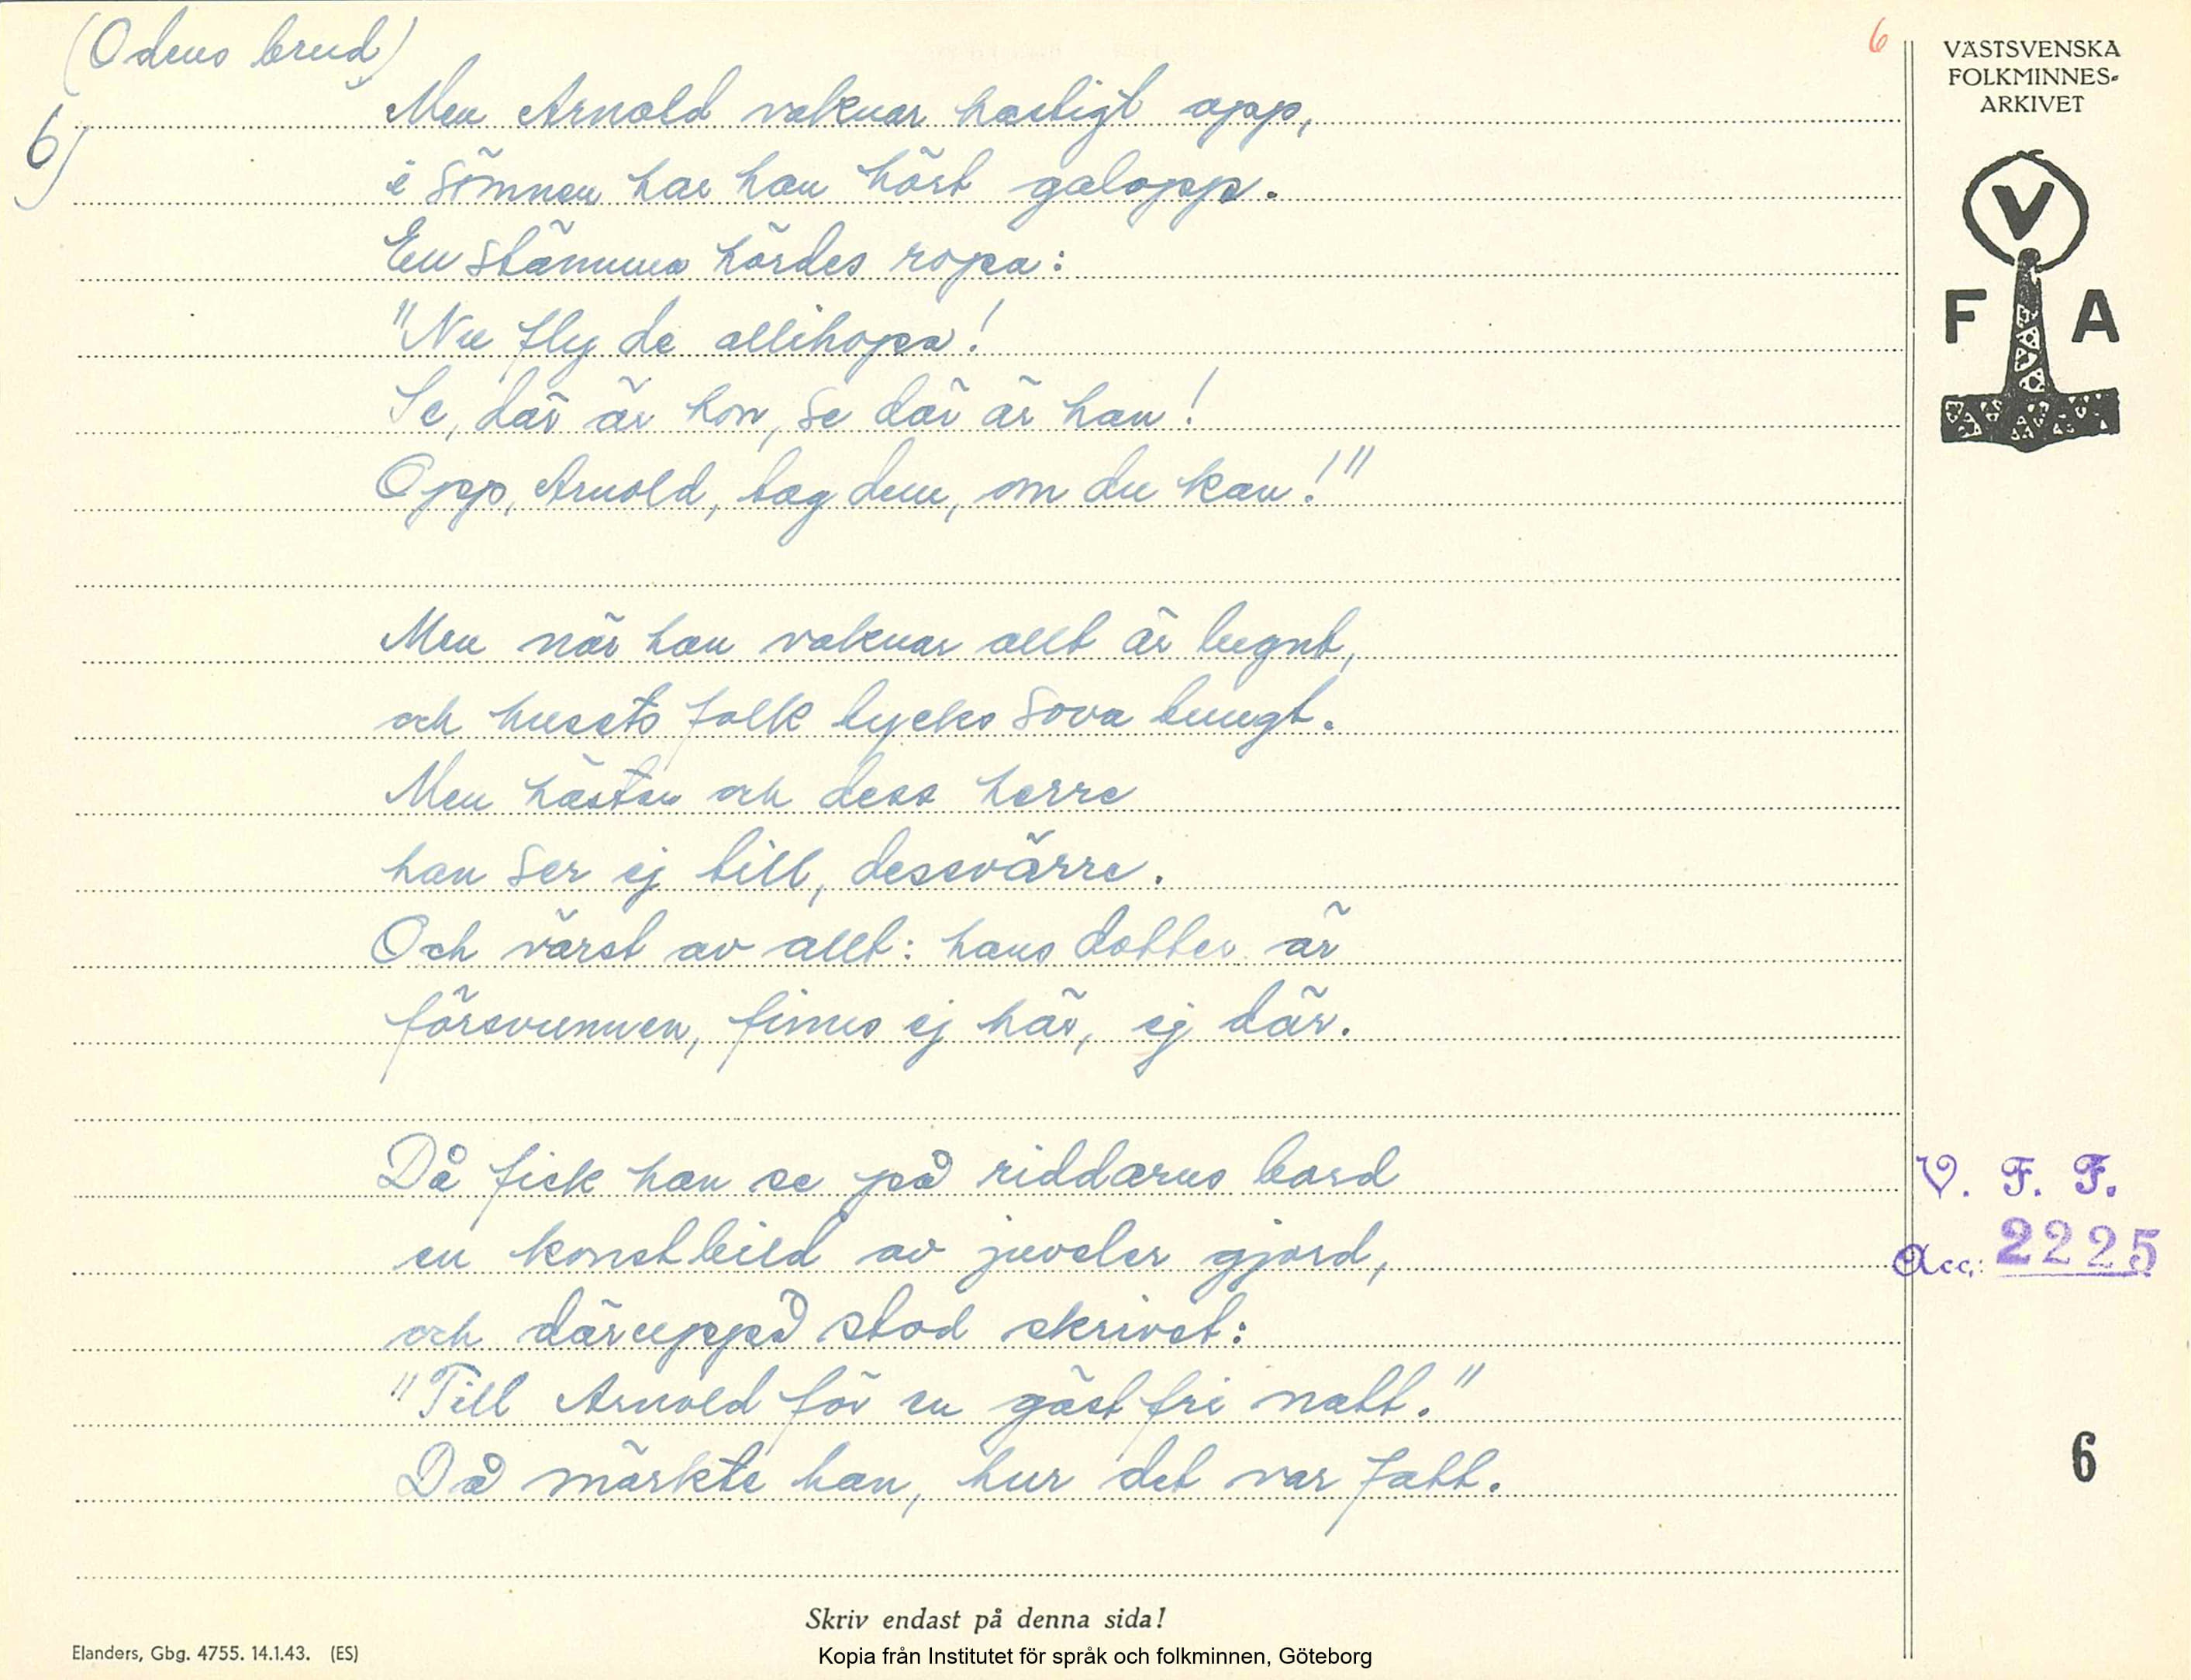 (Odens brud)
6
VÄSTSVENSKA
FOLKMINNES-
ARKIVET
6)
Men Arnold vaknar hastigt opp,
i sömnen har han hört galopp.
En stämma hördes ropa:
"Nu fly de allihopa!
Se, där är hon, se där är han!
Opp, Arnold, tag dem, om du kan!"
V
F A
Men när han vaknar allt är lugnt,
och husets folk tycks sova tungt.
Men hästen och dess herre
han ser ej till, dessvärre.
Och värst av allt: hans dotter är
försvunnen, finns ej här, ej där.
Då fick han se på riddarns bord
en konstbild av juveler gjord,
och däruppå stod skrivet:
"Till Arnold för en gästfri natt."
Då märkte han, hur det var fatt.
V. F. F.
Acc: 2225
6
Skriv endast på denna sida!
Elanders, Gbg. 4755. 14.1.43. (ES)
Kopia från Institutet för språk och folkminnen, Göteborg